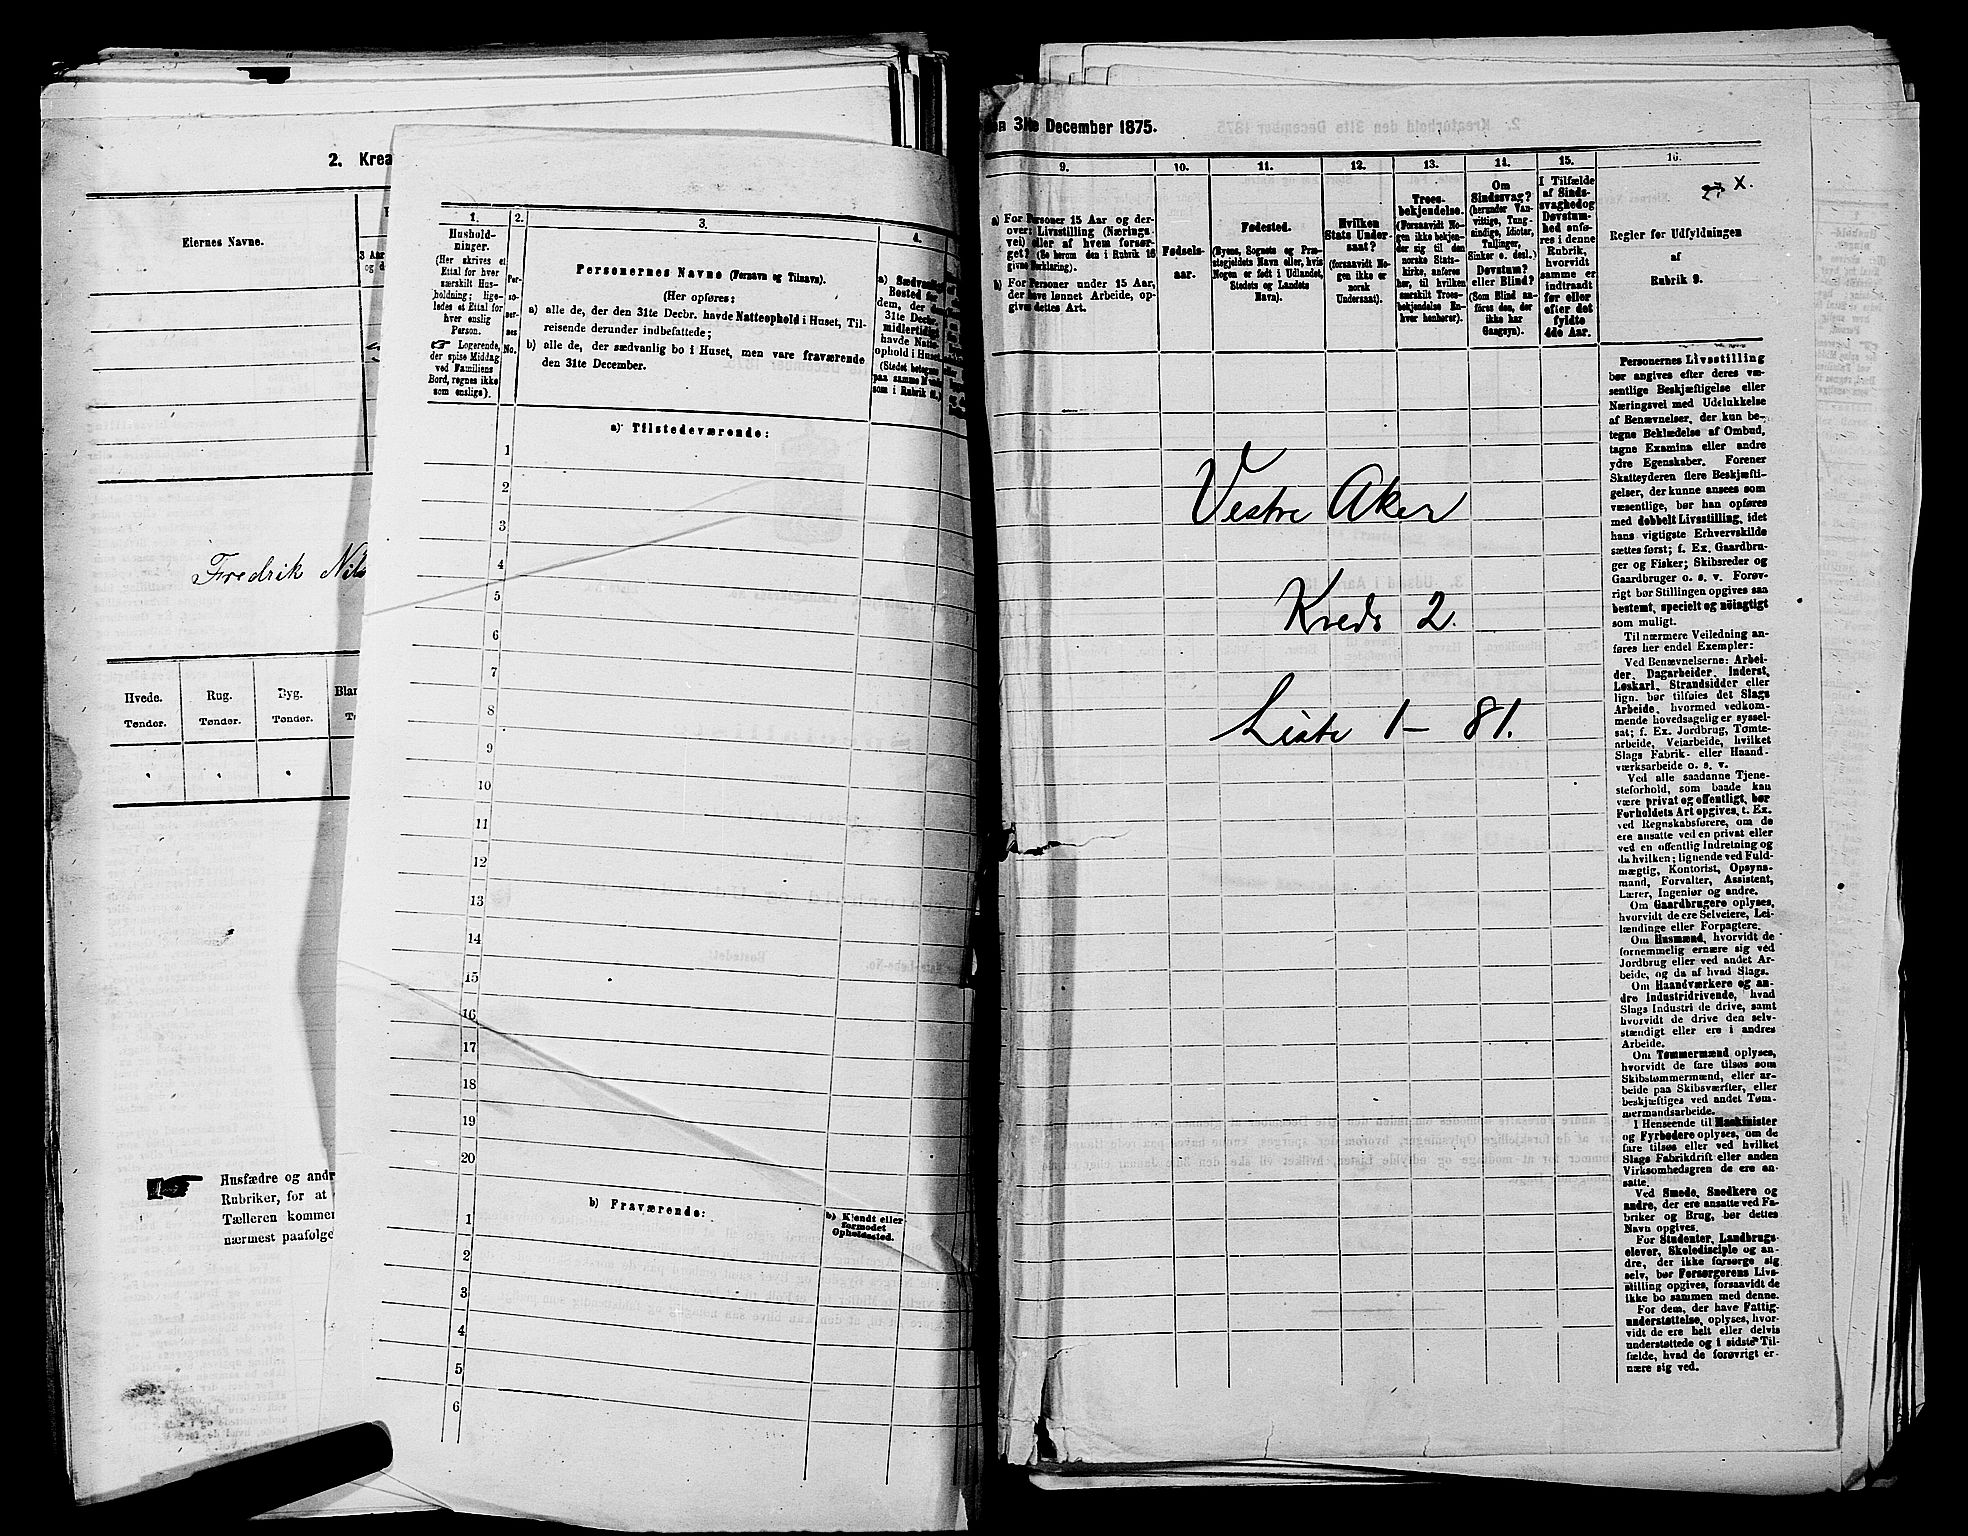 2. Krea
Eiernes Navne.
3 Aar
Fredrik Nils
Hvede. Rug. Byg. Blan
Tønder. Tønder. Tønder.
Husfædre og andr
Rubriker, for at
Tælleren kommer
nærmest paafølge
1. 2. 3. 4.
Hushold-
ninger.
(Her skrives et
Ettal for hver
særskilt Hus-
holdning; lige-
ledes et Ettal for
hver enslig
Person.
Logerende,
der spise Middag
ved Familiens
Bord, regnes ikke
som enslige).
Per-
so-
ner-
nes
No.
Personernes Navne (Fornavn og Tilnavn).
(Her opføres:
a) alle de, der den 31te Decbr. havde Natteophold i Huset, Til-
reisende derunder indbefattede;
b) alle de, der sædvanlig bo i Huset, men vare fraværende
den 31te December.
a) Sædvanligt
Bosted for
dem, der den
31te Decbr.
midlertidigt
havde Natte-
ophold i Huset.
(Stedet betegnes
paa samme Maade
som i Rubrik 11.)
a) Tilstedeværende:
1
2
3
4
5
6
7
8
9
10
11
12
13
14
15
16
17
18
19
20
b) Fraværende:
b) Kjendt eller
formodet
Opholdssted.
1
2
3
4
5
6
31te December 1875.
9. 10. 11. 12. 13. 14. 15. 16.
a) For Personer 15 Aar og der-
over: Livsstilling (Nærings-
vei) eller af hvem forsør-
get? (Se herom den i Rubrik 16
givne Forklaring).
b) For Personer under 15 Aar,
der have lønnet Arbeide, op-
gives dettes Art.
Fødsels-
aar.
Fødested.
(Byens, Sognets og Præ-
stegjeldets Navn eller, hvis
Nogen er født i Udlandet,
Stedets og Landets
Navn).
Hvilken
Stats Under-
saat?
(forsaavidt No-
gen ikke er
norsk
Undersaat).
Troes-
bekjendelse.
(Forsaavidt No-
gen ikke bekjen-
der sig til den
norske Stats-
kirke, anføres
her, til hvilken
særskilt Troes-
bekjendelse En-
hver henhører).
Om
Sindssvag?
(herunder Van-
vittige, Tung-
sindige, Idioter,
Tullinger,
Sinker o. desl.)
Døvstum?
eller Blind?
(Som Blind an-
føres den, der
ikke har
Gangsyn).
I Tilfælde
af Sinds-
svaghed og
Døvstum-
hed anfø-
res i denne
Rubrik,
hvorvidt
samme er
indtraadt
før eller
efter det
fyldte
4de Aar.
27 X.
Regler for Udfyldningen
af
Rubrik 9.
Vestre Aker
Kreds 2.
Liste 1 – 81.
Personernes Livsstilling
bør angives efter deres væ-
sentlige Beskjæftigelse eller
Næringsvei med Udelukkelse
af Benævnelser, der kun be-
tegne Beklædelse af Ombud,
tagne Examina eller andre
ydre Egenskaber. Forener
Skatteyderen flere Beskjæfti-
gelser, der kunne ansees som
væsentlige, bør han opføres
med dobbelt Livsstilling, idet
hans vigtigste Erhvervskilde
sættes først; f. Ex. Gaardbru-
ger og Fisker; Skibsreder og
Gaardbruger o. s. v. Forøv-
rigt bør Stillingen opgives saa
bestemt, specielt og nöiagtigt
som muligt.
Til nærmere Veiledning an-
føres her endel Exempler:
Ved Benævnelserne: Arbei-
der, Dagarbeider, Inderst,
Løskarl, Strandsidder eller
lign. bør tilføies det Slags
Arbeide, hvormed vedkom-
mende hovedsagelig er syssel-
sat; f. Ex. Jordbrug, Tømte-
arbeide, Veiarbeide, hvilket
Slags Fabrik- eller Haand-
værksarbeide o. s. v.
Ved alle saadanne Tjene-
steforhold, som baade kan
være privat og offentligt, bør
Forholdets Art opgives, t. Ex.
ved Regnskabsførere, om de
ere ansatte ved en privat eller
ved en offentlig Indretning og
da hvilken; lignende ved Fuld-
mægtig, Kontorist, Opsyns-
mand, Forvalter, Assistent,
Lærer, Ingeniør og andre.
Om Gaardbrugere oplyses,
hvorvidt de ere Selveiere, Lei-
lændinge eller Forpagtere.
Om Husmænd, hvorvidt de
fornemmelig ernære sig ved
Jordbrug eller ved andet Ar-
beide, og da af hvad Slags.
Om Haandværkere og an-
dre Industridrivende, hvad
Slags Industri de drive, samt
hvorvidt de drive den selv-
stændigt eller ere i andres
Arbeide.
Om Tømmermænd oplyses,
hvorvidt de fare tilsøs som
Skibstømmermænd, eller ar-
beide paa Skibsværfter, eller
beskjæftiges ved andet Tøm-
mermandsarbeide.
I Henseende til Maskinister
og Fyrbødere oplyses, om de
fare tilsøs eller ved hvilket
Slags Fabrikdrift eller anden
Virksomhedsgren de ere an-
satte.
Ved Smede, Snedkere og
andre, der ere ansatte ved Fa-
briker og Brug, bør dettes
Navn opgives.
For Studenter, Landbrugs-
elever, Skoledisciple og an-
dre, der ikke forsørge sig
selv, bør Forsørgerens Livs-
stilling opgives, forsaavidt de
ikke bo sammen med denne.
For dem, der have Fattig-
understøttelse, oplyses, hvor-
vidt de ere helt eller delvis
understøttede og i sidste Til-
fælde, hvad de forøvrigt er-
nære sig ved.